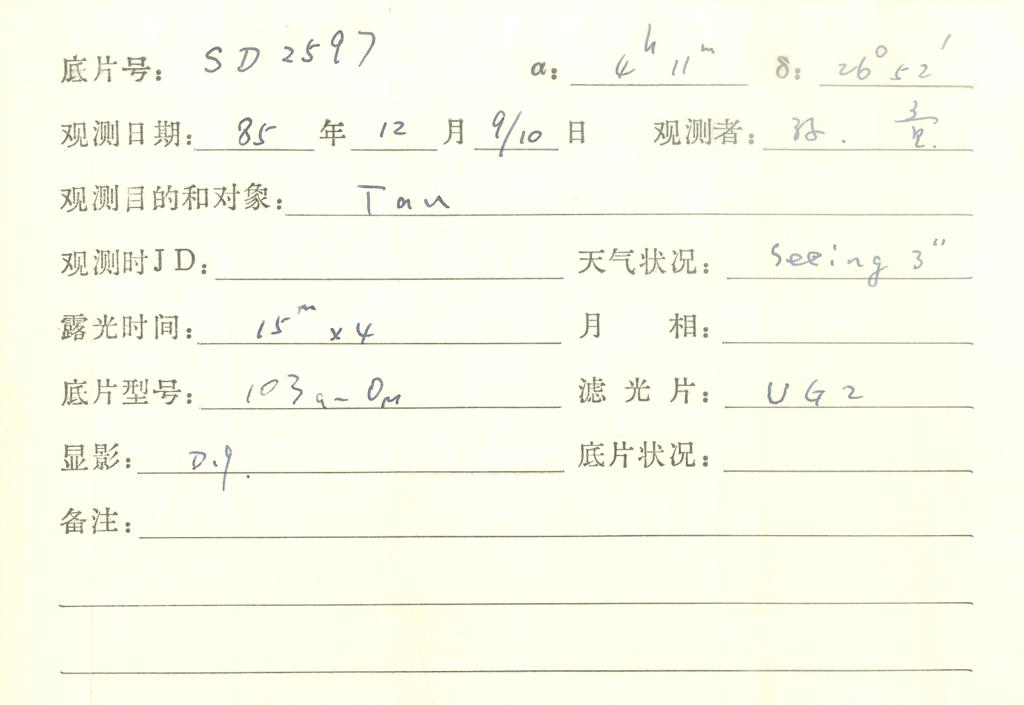 底片号: SD2597 α: 4h 11m δ: 26° 52′
观测日期: 85 年 12 月 9/10 日 观测者: 孙.
观测目的和对象: Tau
观测时JD: 天气状况: Seeing 3″
露光时间: 15m x4 月 相:
底片型号: 103a-O 滤光片: UG2
显影: D.19.
底片状况:
备注: